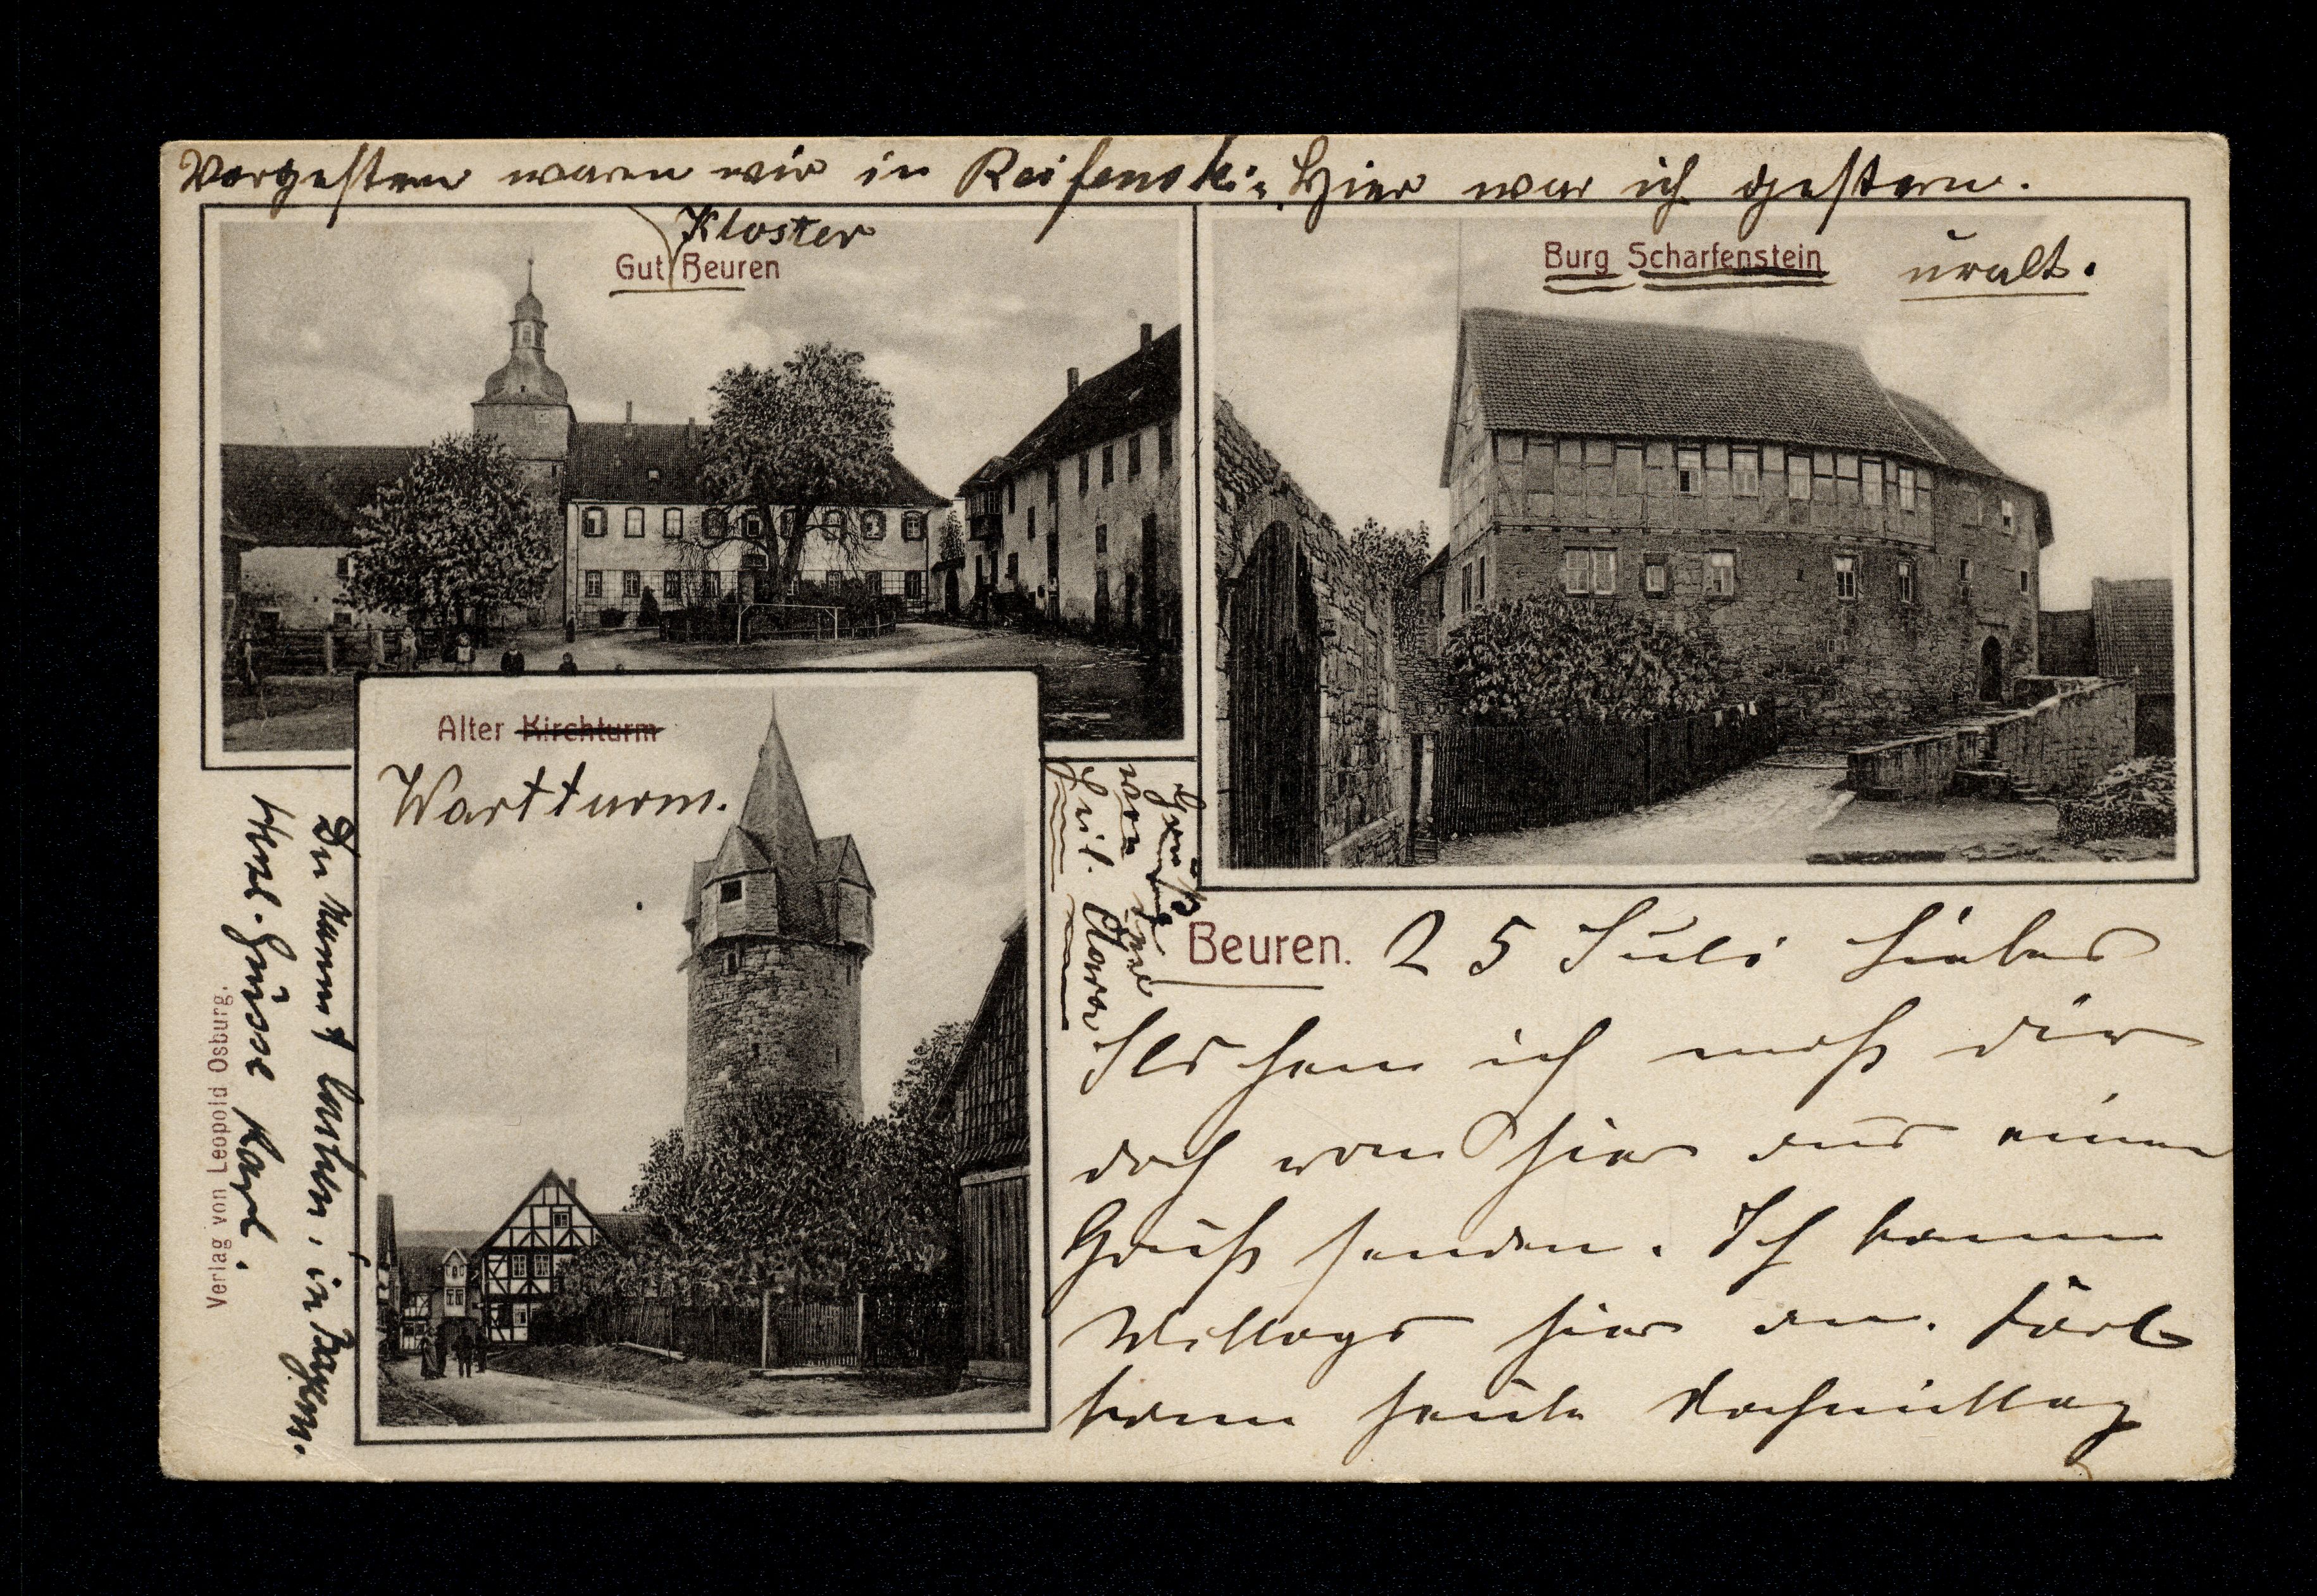 Vorgestern waren wir in Reifenst. Hier war ich gestern.
Kloster
Gut Beuren
Burg Scharfenstein uralt.
Alter Kirchturm
Wartturm.
Grüße
von
Frl. Clara
Beuren. 25 Juli Liebes
ich muß dir
doch von hier aus einen
Gruß senden. Ich kam
Mittags hier an. Karl
kam heute Nachmittag
in Bayern.
Herzl. Grüsse Karl.
Verlag von Leopold Osburg.